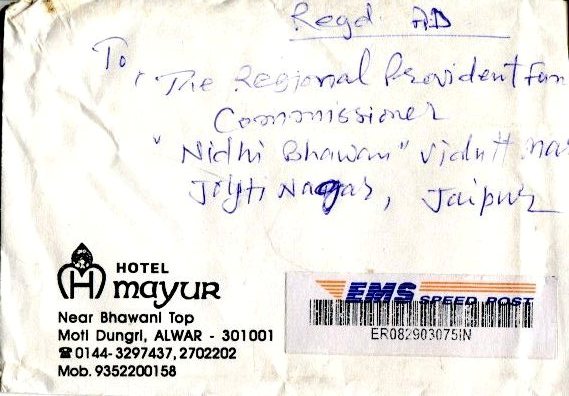 Regd. AD
To,
The Regional Provident Fun
Commissioner
"Nidhi Bhawan" Vidutt Na
Jolyti Nagar, Jaipur
HOTEL
mayur
Near Bhawani Top
Moti Dungri, ALWAR - 301001
☎ 0144-3297437, 2702202
Mob. 9352200158
EMS SPEED POST
ER082903075IN